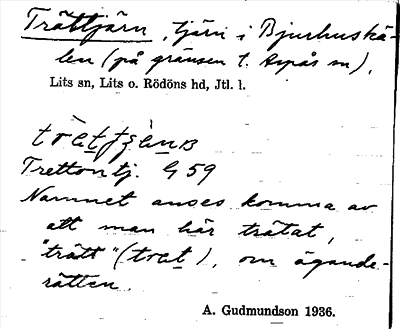 Trättjärn, tjärn i Bjurhuskä-
len (på gränsen t. Aspås sn),
Lits sn, Lits o. Rödöns hd, Jtl. l.
Trettontj. G 59
Namnet anses komma av
att man här trätat,
"trätt" (), om ägande-
rätten.
A. Gudmundson 1936.